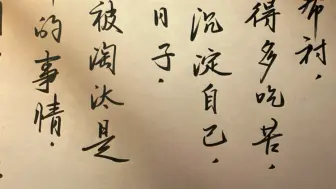 布衬，
得多吃苦，
沉淀自己，
日子，
被淘汰是
的事情．